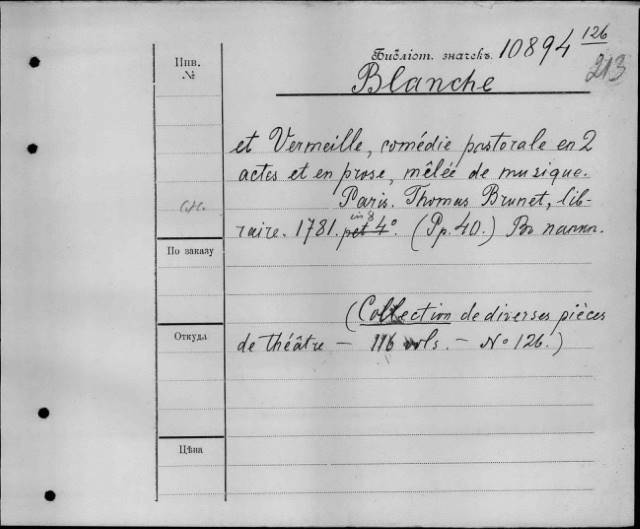 Инв.
№
Библіот. значекъ 10894 126
213
Blanche
et Vermeille, comédie pastorale en 2
actes et en prose, mêlée de musique.
Paris. Thomas Brunet, lib-
raire. 1781. pet 4°. in 8 (Pp. 40.) Въ папк.
По заказу
(Collection de diverses pièces
Откуда
de théâtre — 116 vols. — № 126.)
Цѣна